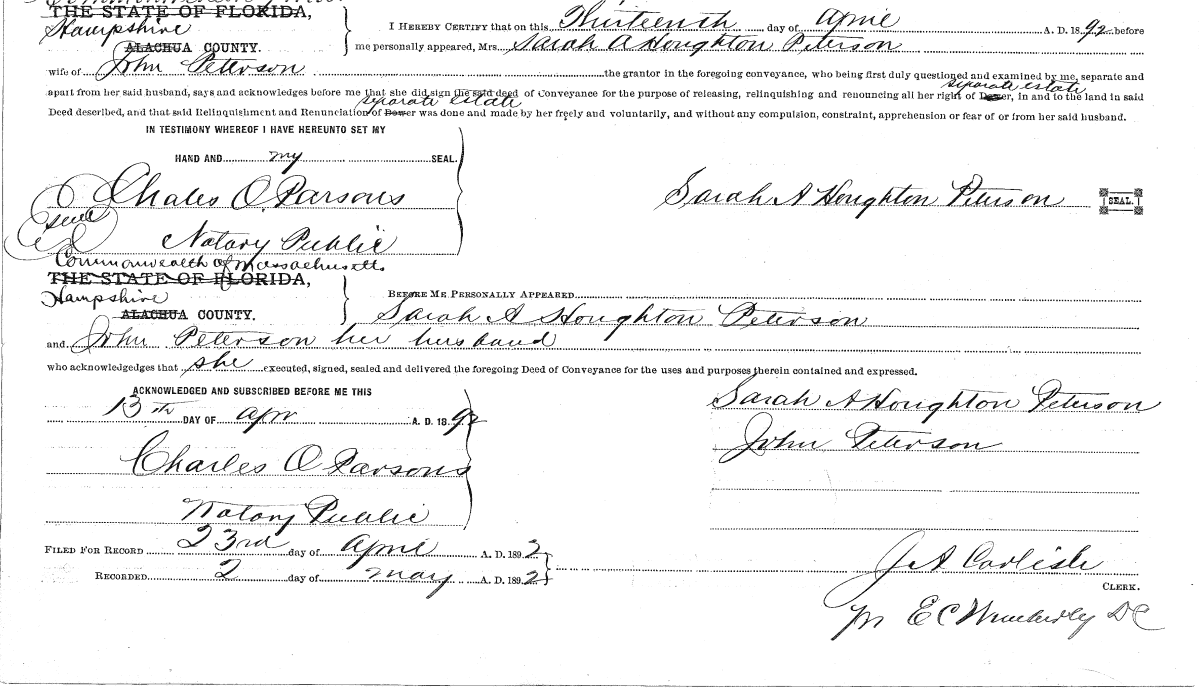 THE STATE OF FLORIDA,
Hampshire
ALACHUA COUNTY.
I HEREBY CERTIFY that on this Thirteenth day of April A. D. 1892 before
me personally appeared, Mrs. Sarah A Houghton Peterson
wife of John Peterson the grantor in the foregoing conveyance, who being first duly questioned and examined by me, separate and
separate estate
apart from her said husband, says and acknowledges before me that she did sign the said deed of Conveyance for the purpose of releasing, relinquishing and renouncing all her right of Dower, in and to the land in said
separate estate
Deed described, and that said Relinquishment and Renunciation of Dower was done and made by her freely and voluntarily, and without any compulsion, constraint, apprehension or fear of or from her said husband.
IN TESTIMONY WHEREOF I HAVE HEREUNTO SET MY
HAND AND my SEAL.
Chales O. Parsons
Sarah A Houghton Peterson SEAL.
Seal
Notary Public
Commonwealth of Massachusetts.
THE STATE OF FLORIDA,
Hampshire
ALACHUA COUNTY.
BEFORE ME PERSONALLY APPEARED
Sarah A Houghton Peterson
and John Peterson her husband
who acknowledgeds that she executed, signed, sealed and delivered the foregoing Deed of Conveyance for the uses and purposes therein contained and expressed.
ACKNOWLEDGED AND SUBSCRIBED BEFORE ME THIS
13th DAY OF Apr A. D. 1892
Sarah A Houghton Peterson
John Peterson
Charles O Parsons
Notary Public
FILED FOR RECORD 23rd day of April A. D. 1892
RECORDED 2 day of May A. D. 1892
J A Carlisle
CLERK.
E C Wimberly DC